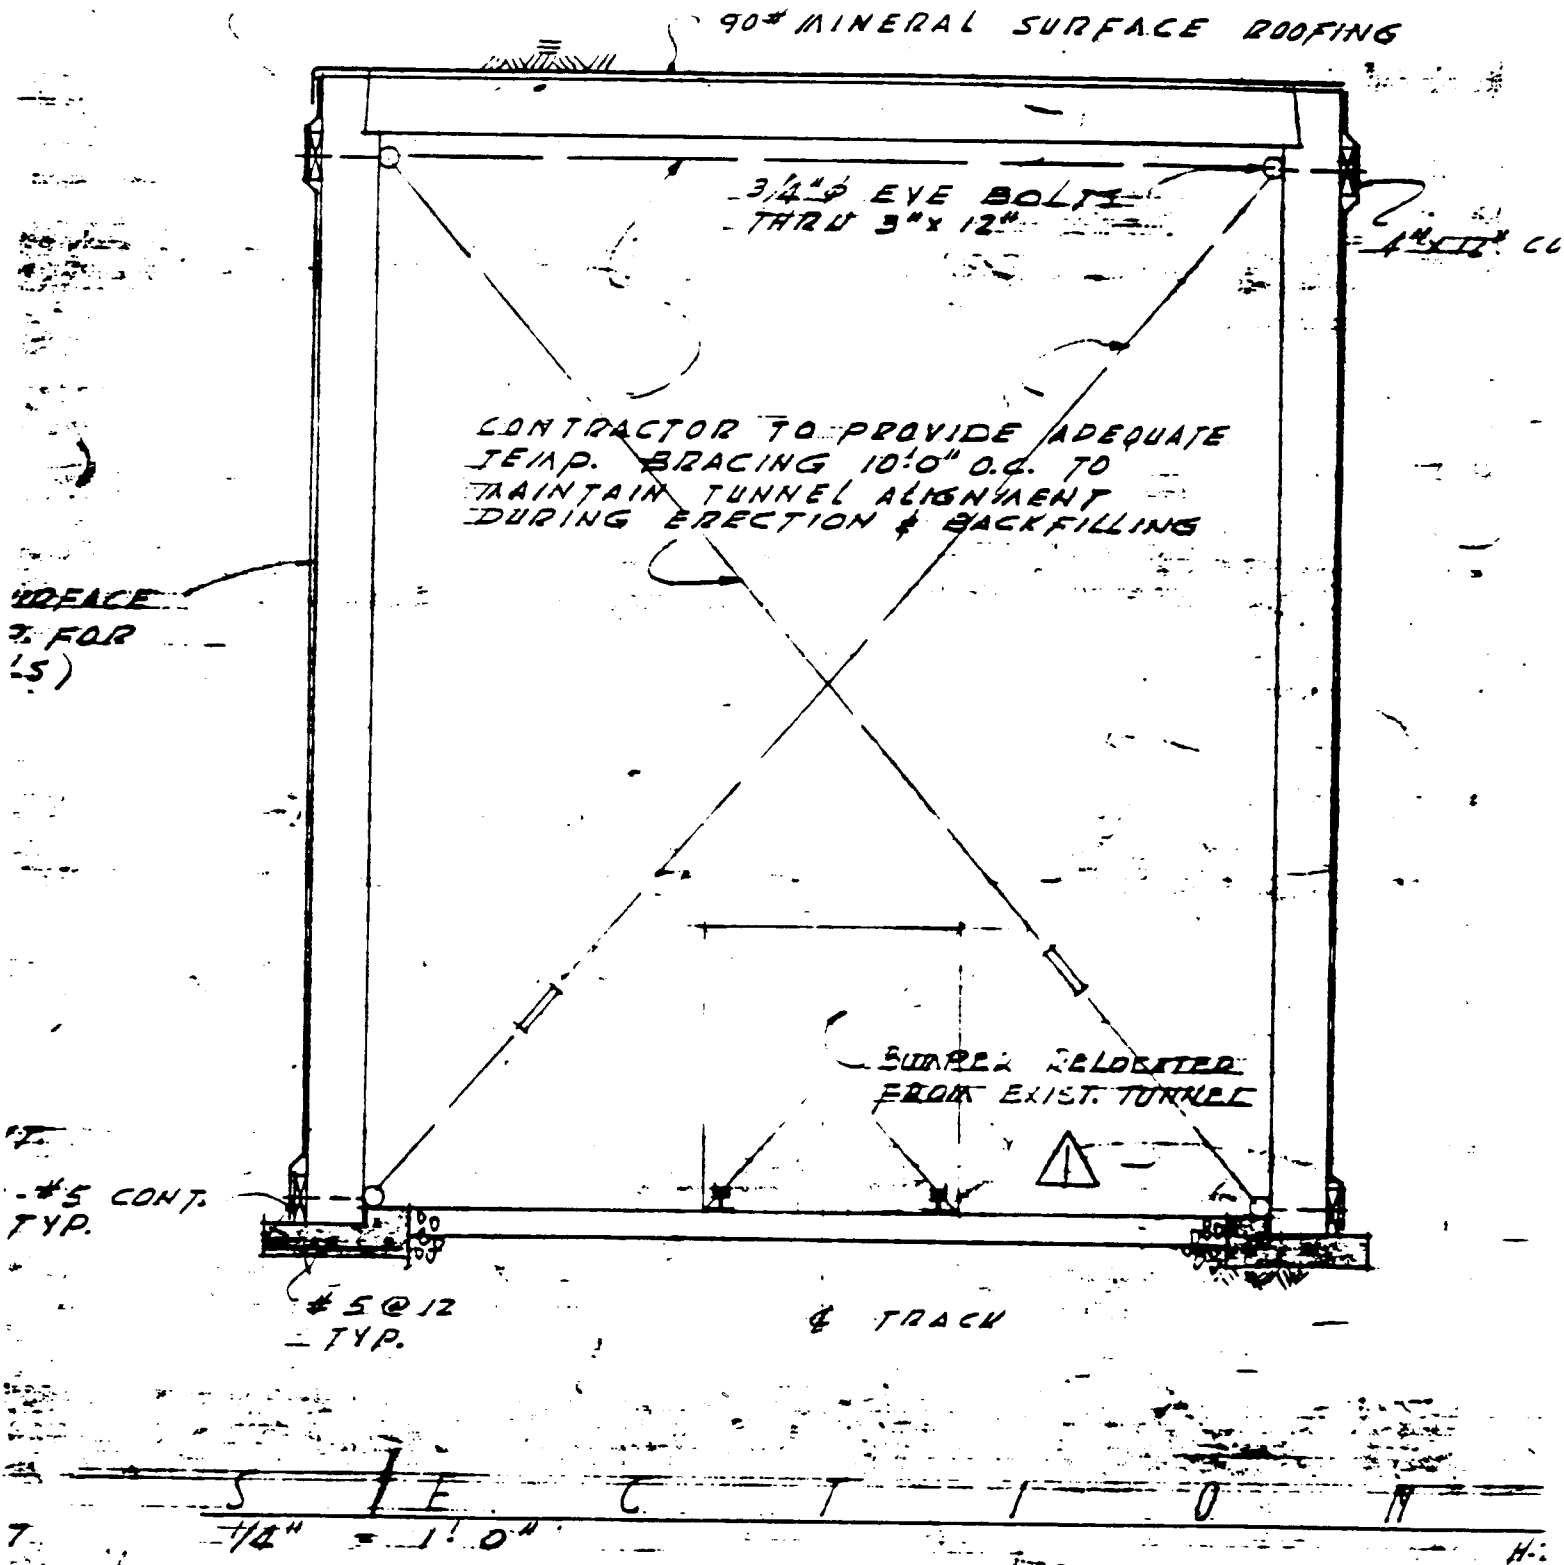 90# MINERAL SURFACE ROOFING
3/4"φ EYE BOLTS
THRU 3"x 12"
CONTRACTOR TO PROVIDE ADEQUATE
TEMP. BRACING 10'0" O.C. TO
MAINTAIN TUNNEL ALIGNMENT
DURING ERECTION & BACKFILLING
FOR
BUMPER RELOCATED
FROM EXIST. TUNNEL
#5 CONT.
TYP.
#5 @ 12
TYP.
℄ TRACK
SECTION
1/4" = 1'0"